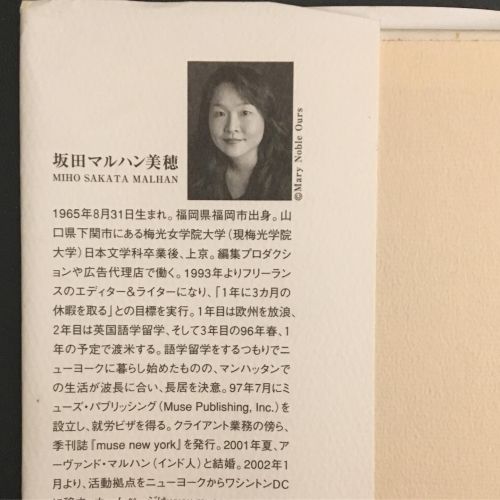 ©Mary Noble Ours
坂田マルハン美穂
MIHO SAKATA MALHAN
1965年8月31日生まれ。福岡県福岡市出身。山
口県下関市にある梅光女学院大学(現梅光学院
大学)日本文学科卒業後、上京。編集プロダクショ
ンや広告代理店で働く。1993年よりフリーラン
スのエディター&ライターになり、「1年に3カ月の
休暇を取る」との目標を実行。1年目は欧州を放浪、
2年目は英国語学留学、そして3年目の96年春、1
年の予定で渡米する。語学留学をするつもりでニ
ューヨークに暮らし始めたものの、マンハッタンで
の生活が波長に合い、長居を決意。97年7月にミ
ューズ・パブリッシング(Muse Publishing, Inc.)を
設立し、就労ビザを得る。クライアント業務の傍ら、
季刊誌『muse new york』を発行。2001年夏、ア
ーヴァンド・マルハン(インド人)と結婚。2002年1
月より、活動拠点をニューヨークからワシントンDC